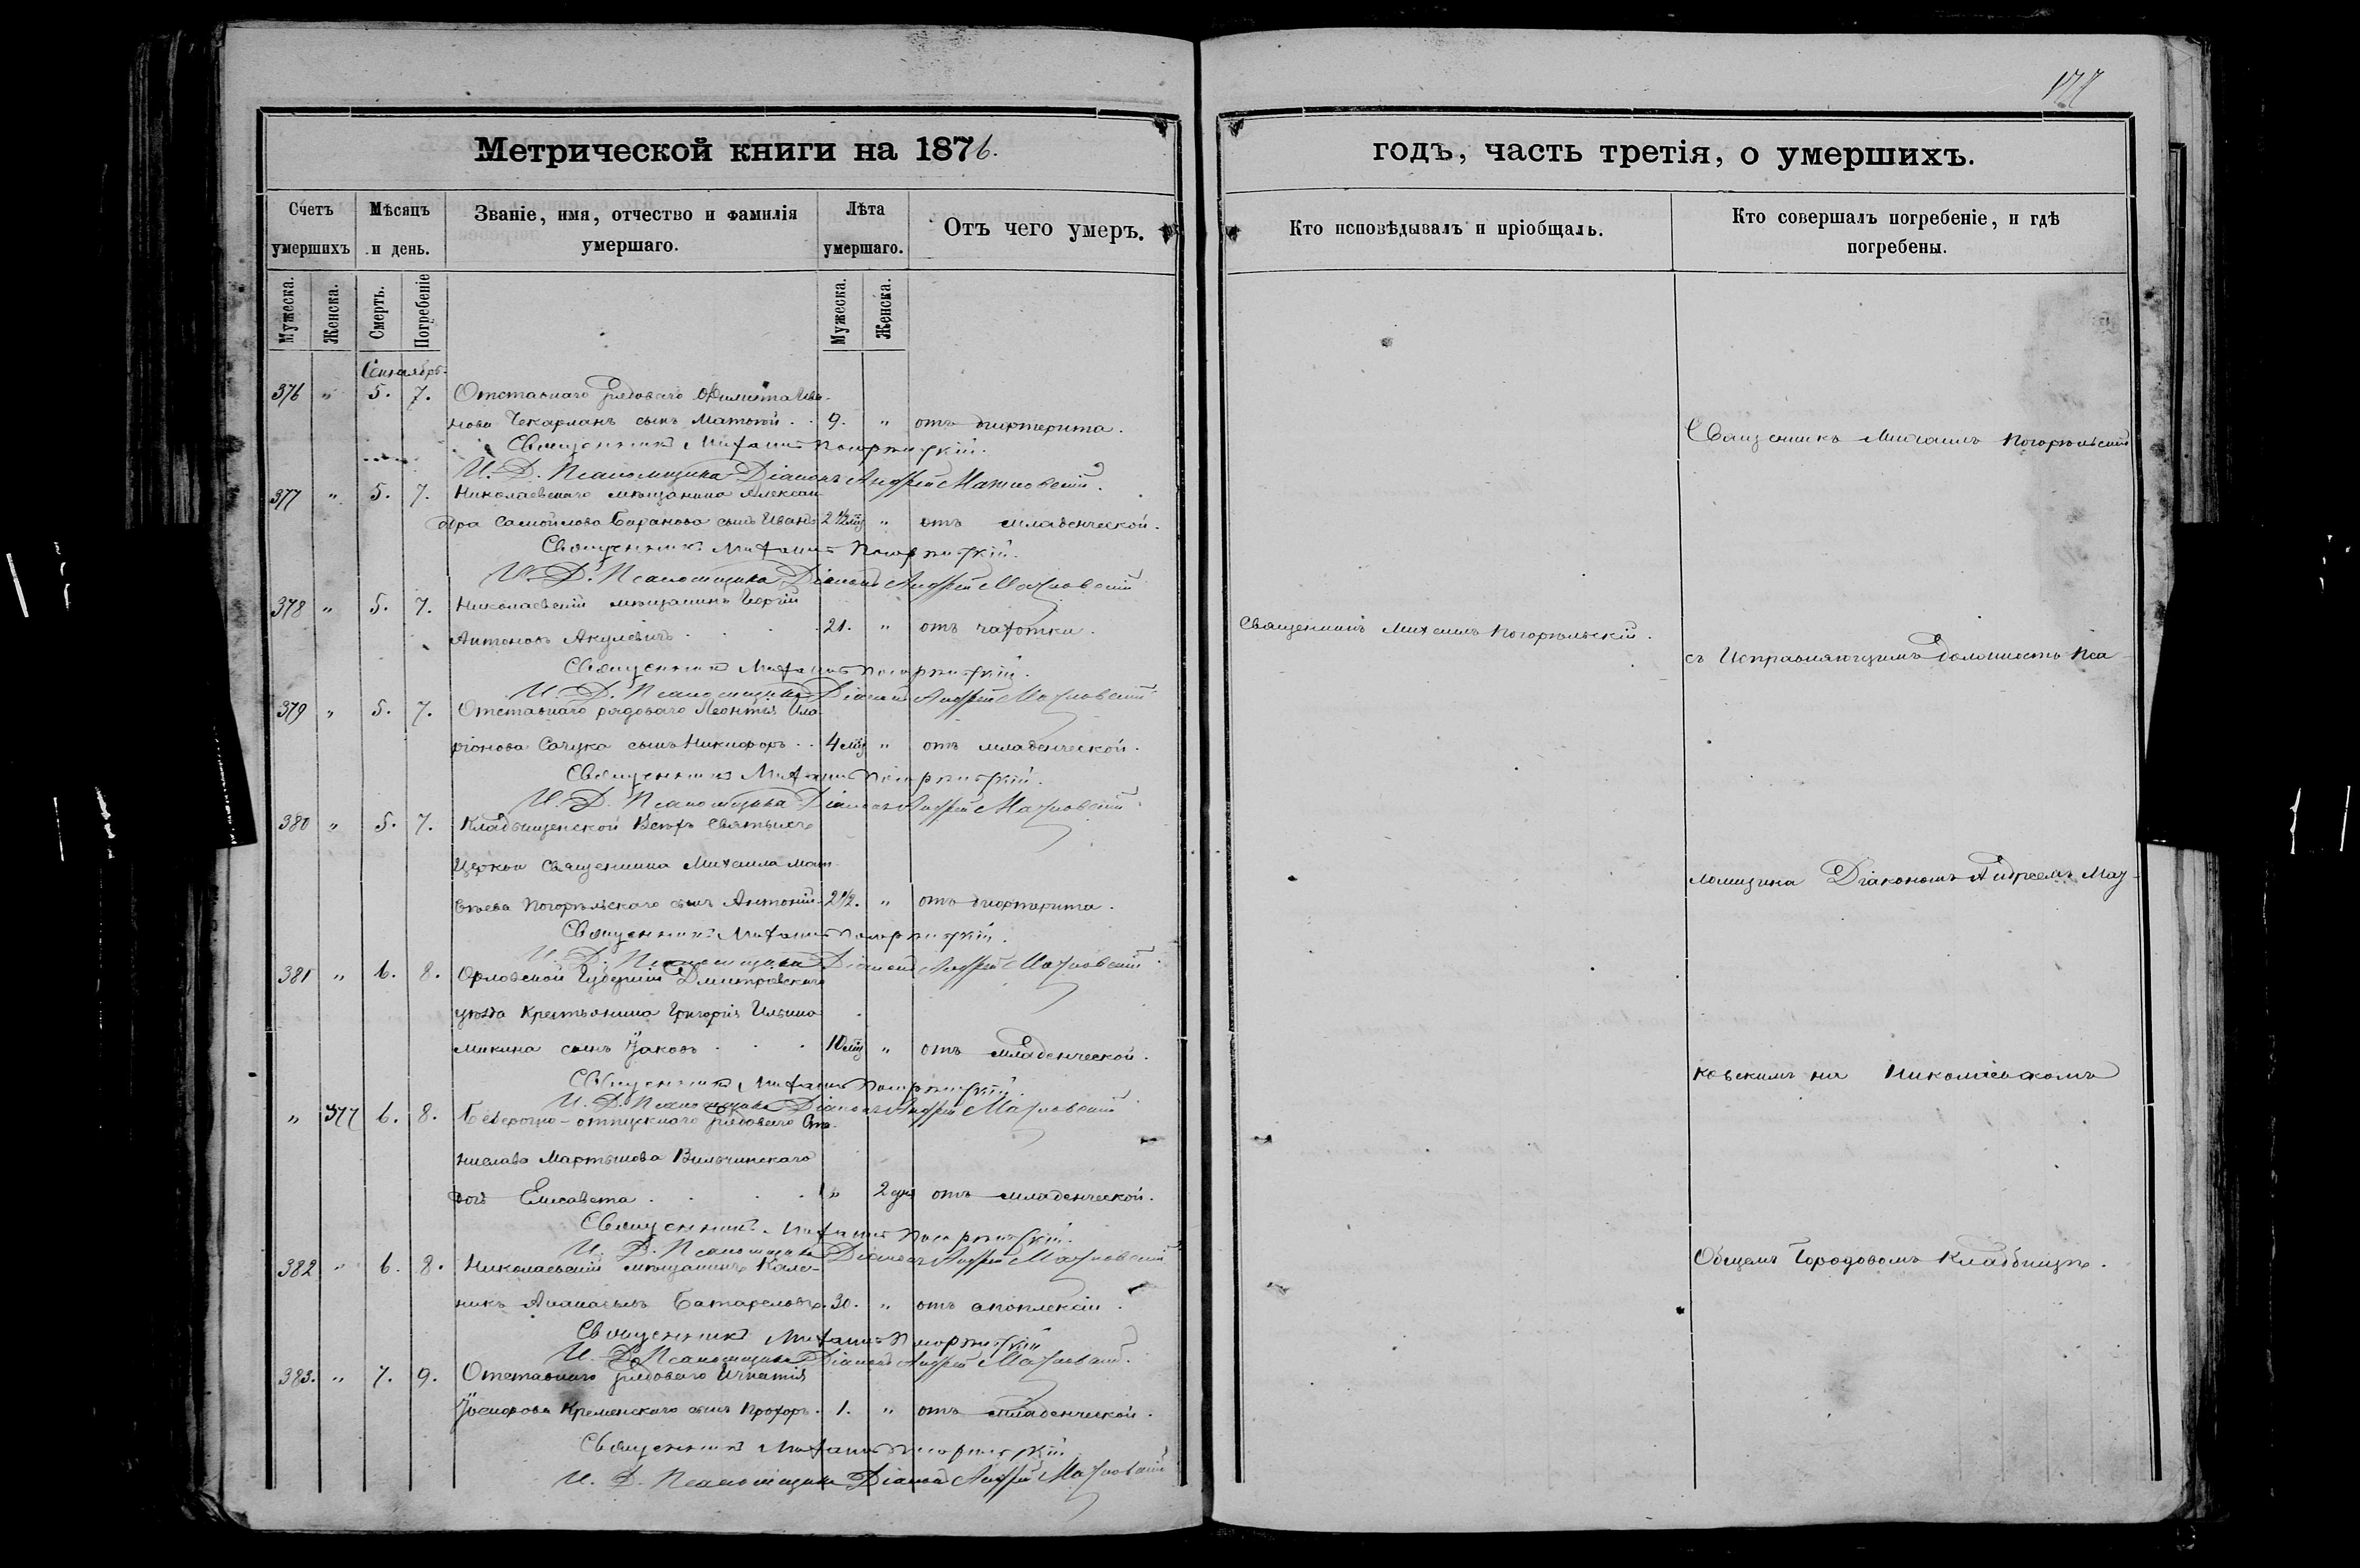 177
Метрической книги на 1876.
годъ, часть третія, о умершихъ.
Счетъ умершихъ
Мѣсяцъ и день.
Званіе, имя, отчество и фамилія умершаго.
Лѣта умершаго.
Отъ чего умеръ.
Кто исповѣдывалъ и пріобщалъ.
Кто совершалъ погребеніе, и гдѣ погребены.
Мужеска.
Женска.
Смерть.
Погребеніе
Мужеска.
Женска.
Сентябрь
376 " 5. 7. Отставнаго рядоваго Ива-
нова Чекарманъ сынъ 9. " отъ дифтерита.
Священникъ Михаилъ Погорѣльскій.
И. Д. Псаломщика Діаконъ Андрей Мазковскій.
377 " 5. 7. Николаевскаго мѣщанина Алексан-
дра Самойлова Баранова сынъ Иванъ 2 1/2 " отъ младенческой.
Священникъ Михаилъ Погорѣльскій.
И. Д. Псаломщика Діаконъ Андрей Мазковскій
378 " 5. 7. Николаевскій мѣщанинъ Георгій
Антоновъ Акулевичъ 21. " отъ чахотки.
Священникъ Михаилъ Погорѣльскій.
И. Д. Псаломщика Діаконъ Андрей Мазковскій
379 " 5. 7. Отставнаго рядоваго Леонтія Ила-
ріонова Сачука сынъ Никифоръ 4 " отъ младенческой.
Священникъ Михаилъ Погорѣльскій.
И. Д. Псаломщика Діаконъ Андрей Мазковскій
380 " 5. 7. Кладбищенской Всѣхъ Святыхъ
Церкви Священника Михаила Мат-
вѣева Погорѣльскаго сынъ Антоній 2 1/2. " отъ дифтерита.
Священникъ Михаилъ Погорѣльскій.
И. Д. Псаломщика Діаконъ Андрей Мазковскій
381 " 6. 8. Орловской Губерніи Дмитровскаго
уѣзда Крестьянина Григорія Ильина
Микина сынъ Іаковъ 10 " отъ младенческой.
Священникъ Михаилъ Погорѣльскій.
И. Д. Псаломщика Діаконъ Андрей Мазковскій
" 377 6. 8. Безсрочно-отпускнаго рядоваго Ста-
нислава Мартынова Вильчинскаго
дочь Елисавета " 2 дня отъ младенческой.
Священникъ Михаилъ Погорѣльскій.
И. Д. Псаломщика Діаконъ Андрей Мазковскій
382 " 6. 8. Николаевскій мѣщанинъ Кале-
никъ Батареловъ 30. " отъ апоплексіи.
Священникъ Михаилъ Погорѣльскій
И. Д. Псаломщика Діаконъ Андрей Мазковскій.
383. " 7. 9. Отставнаго рядоваго Игнатія
Іосифова Кременскаго сынъ Прохоръ 1. " отъ младенческой.
Священникъ Михаилъ Погорѣльскій
И. Д. Псаломщика Діаконъ Андрей Мазковскій
Священникъ Михаилъ Погорѣльскій.
Священникъ Михаилъ Погорѣльскій
съ Исправляющимъ должность Пса-
ломщика Діакономъ Андреемъ Маз-
ковскимъ на Николаевскомъ
Общемъ Городовомъ Кладбищѣ.